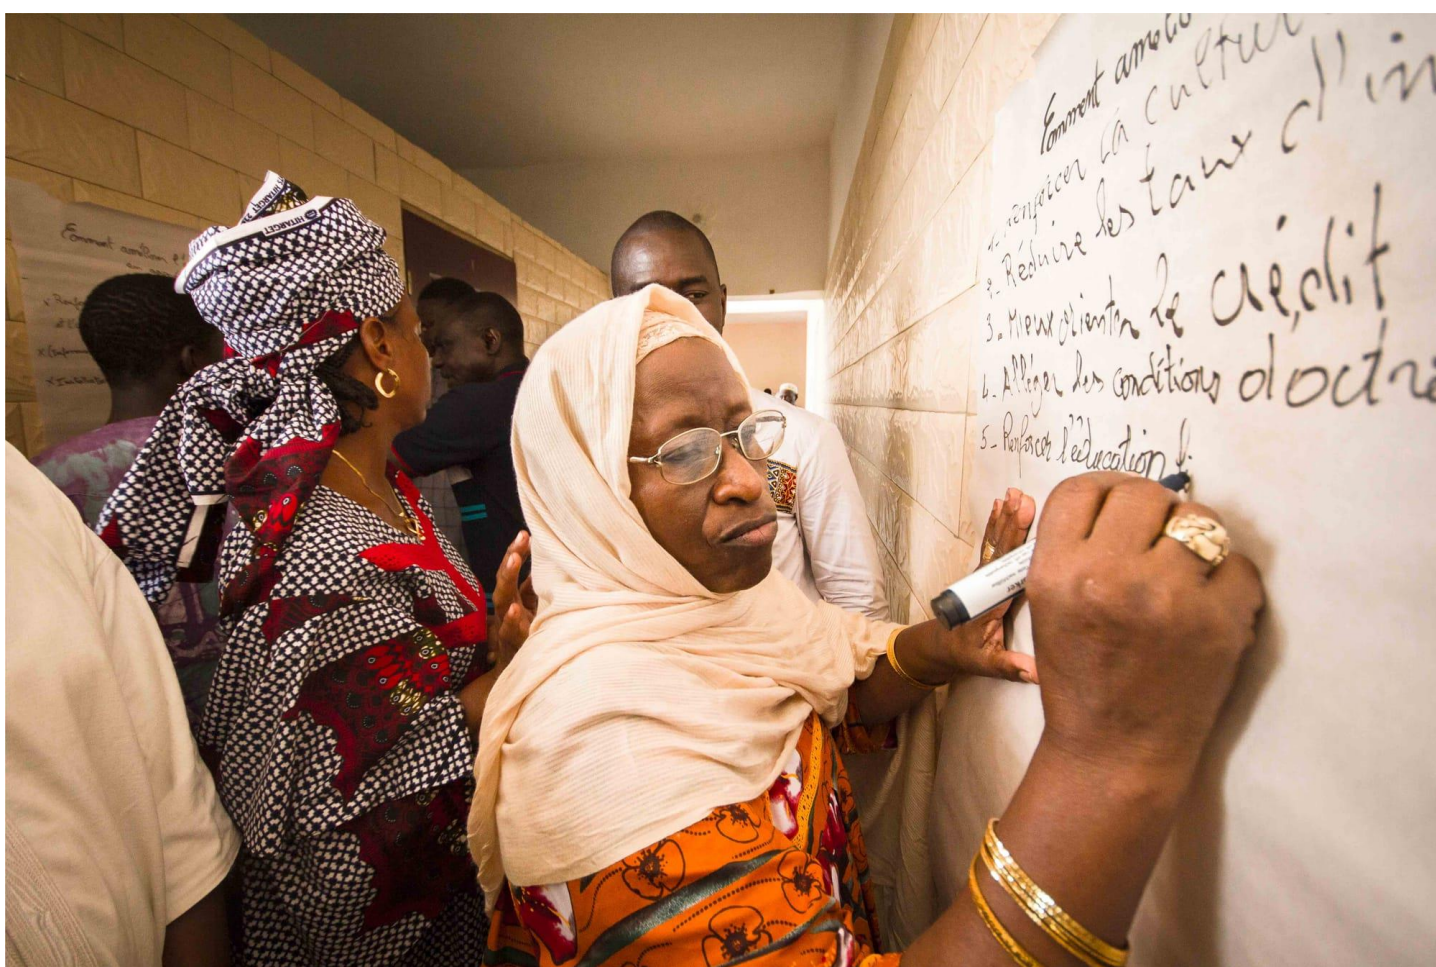 Comment amélio
1. Renforcer la cultur
2- Réduire les taux d'in
3. Mieux orienter le crédit
4. Alléger les conditions d'octr
5- Renforcer l'éducation f
HITARGET
Comment